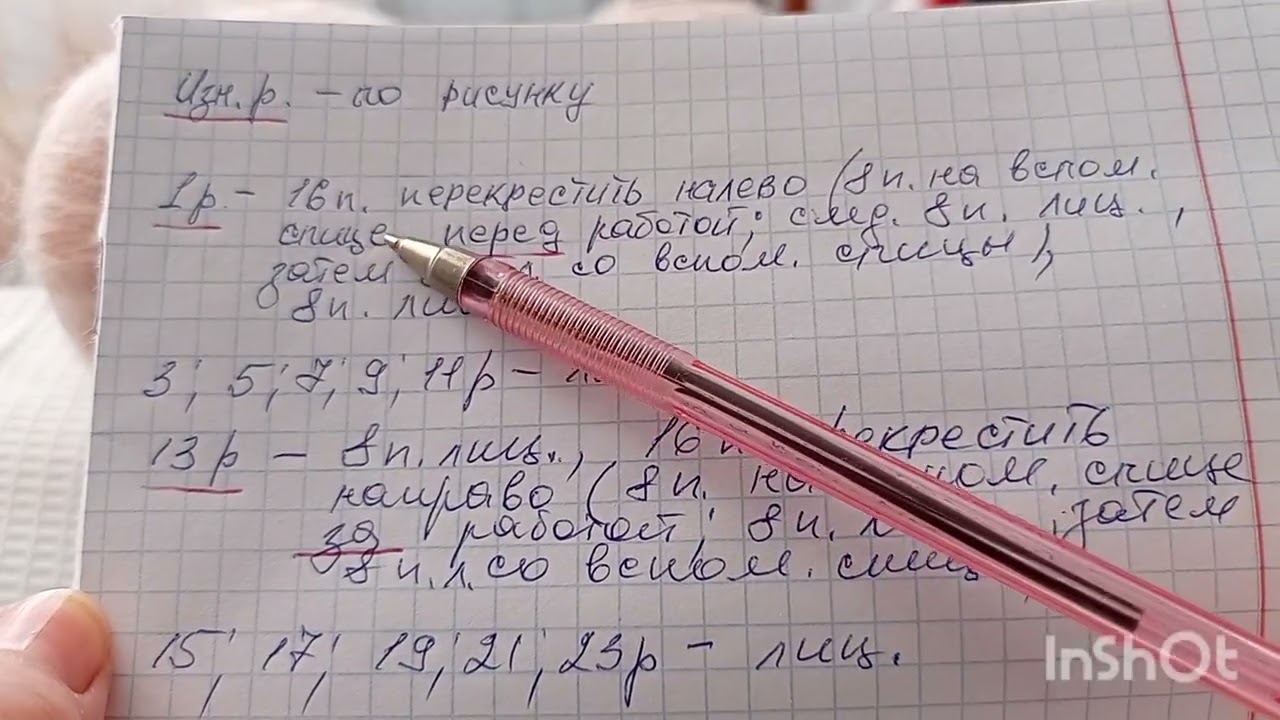 Изн. р. - по рисунку
1 р. - 16 п. перекрестить налево (8 п. на вспом.
спице перед работой; след. 8 п. лиц.,
затем со вспом. спицы),
8 п.
3; 5; 7; 9; 11 р -
13 р - 8 п. лиц., 16
направо (8 п. спице
за работой; 8 п. ; затем
8 п. л. со вспом.
15; 17; 19; 21; 23 р - лиц.
InShOt